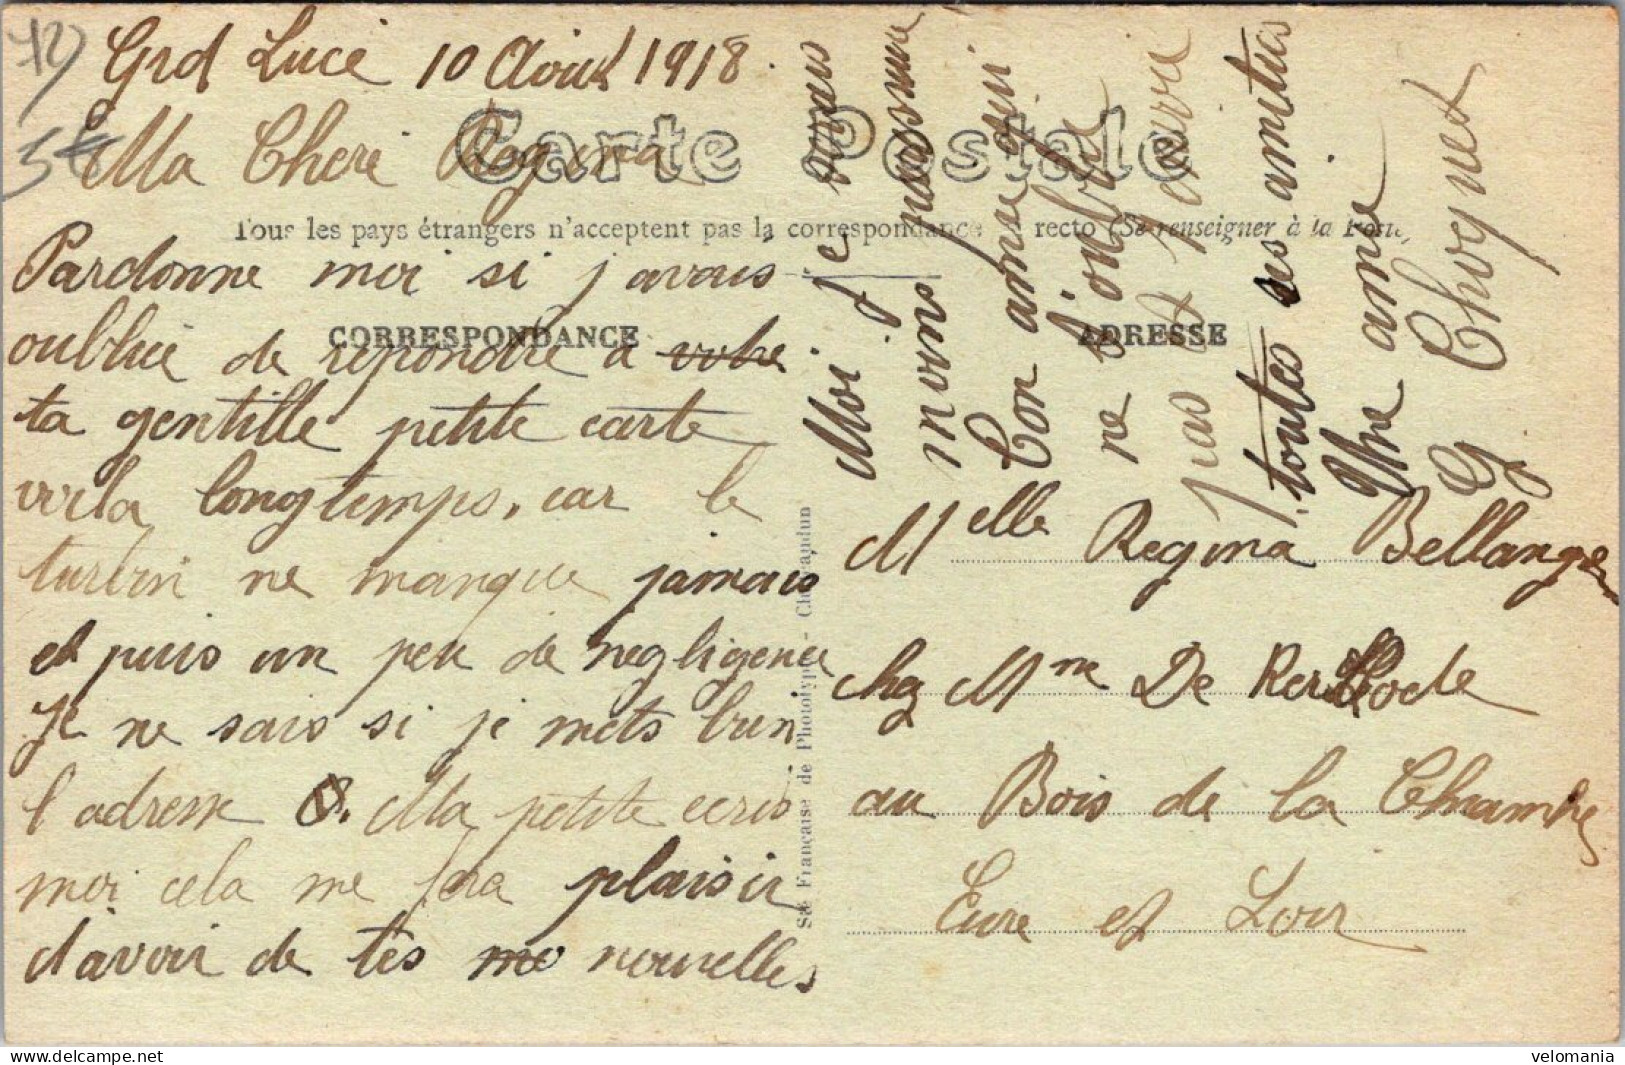 72
5€
Grd Lucé 10 Aout 1918.
Carte Postale
Ma Cheri Regina
Tous les pays étrangers n'acceptent pas la correspondance recto (Se renseigner à la Poste)
CORRESPONDANCE
ADRESSE
Pardonne moi si j'avais
oublié de repondre a votre
ta gentille petite carte
voila longtemps, car le
turbin ne manque jamais
et puis un peu de negligence
Je ne sais si je mets bien
l'adresse. Ma petite ecris
moi cela me fera plaisir
d'avoir de tes nouvelles
Sté Française de Phototypie - Châteaudun
Moi je vais
moins
Ton amie qui
ne t'oublie
pas et t'envoie
toutes ses amities
Ytre amie
G Choqnet
Melle Regina Bellanger
chez Mme De
au Bois de la Chambre
Eure et Loir
velomania